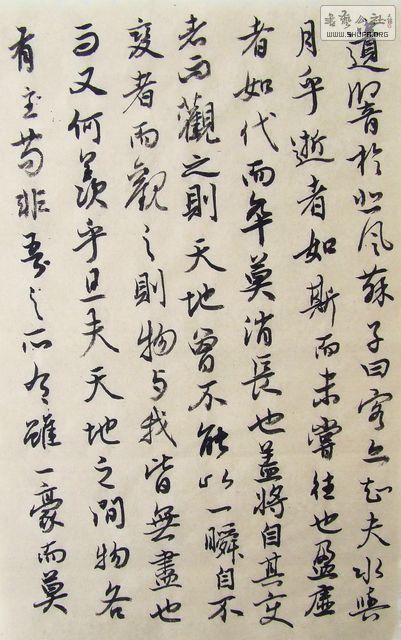 遺響於悲風蘇子曰客亦知夫水與
月乎逝者如斯而未嘗往也盈虛
者如代而卒莫消長也蓋將自其變
者而觀之則天地曾不能以一瞬自不
變者而觀之則物与我皆無盡也
而又何羨乎且夫天地之間物各
有主苟非吾之所有雖一豪而莫
书艺公社
WWW.SHUFA.ORG